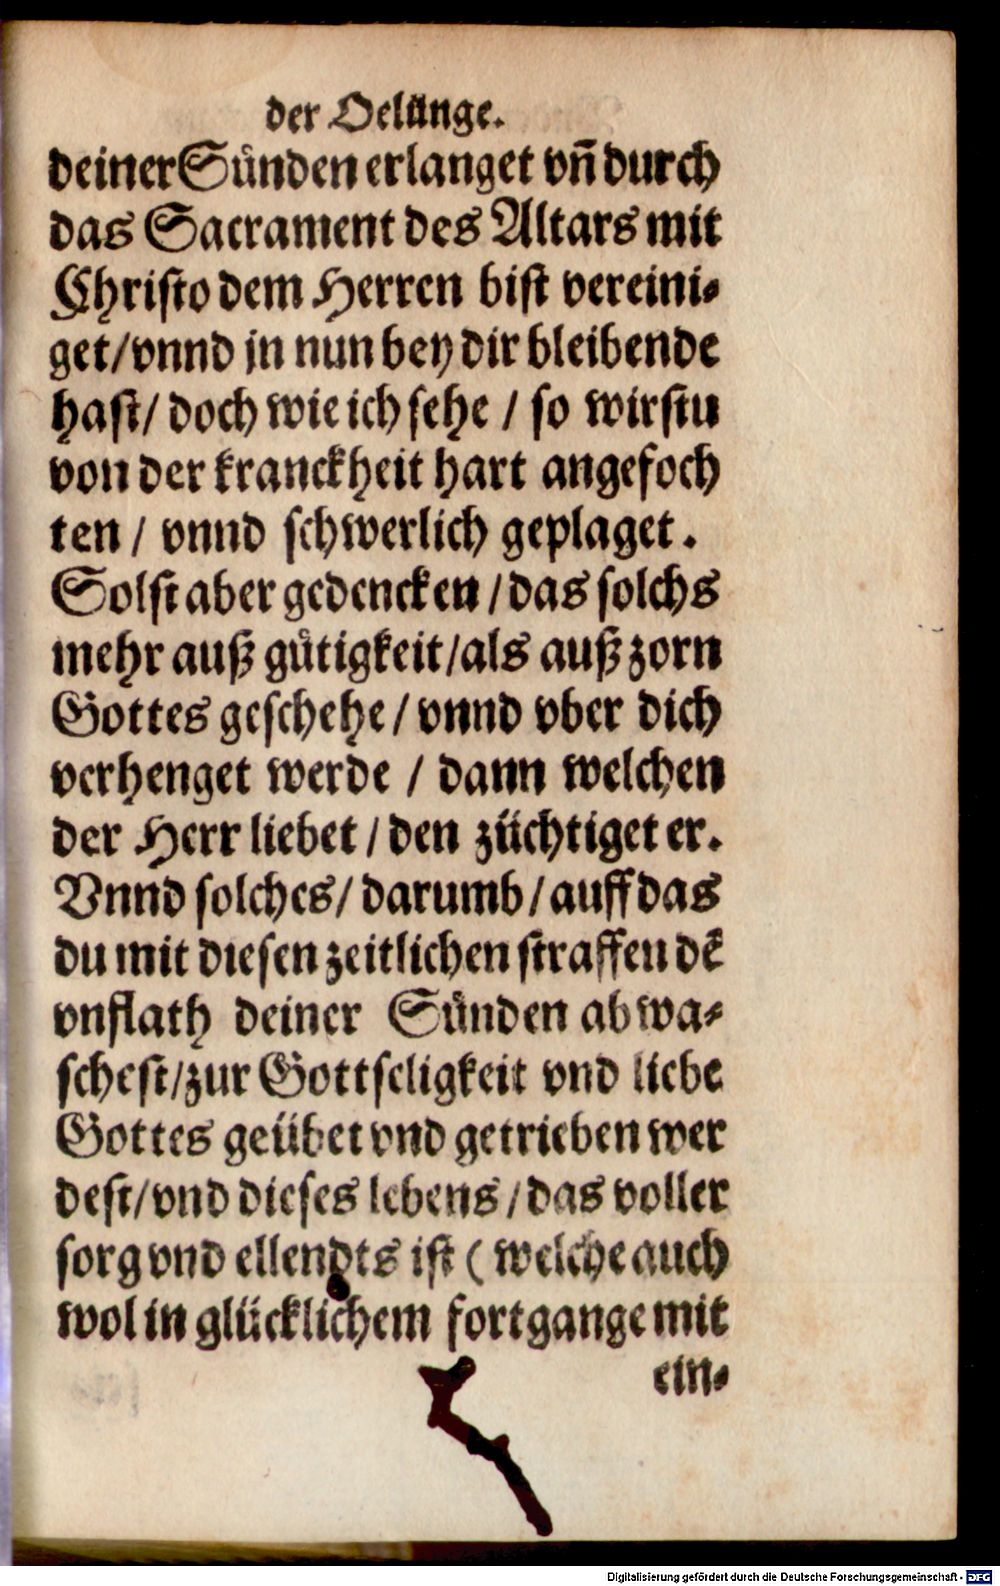 der Oelunge.
deiner Sünden erlanget vñ durch
das Sacrament des Altars mit
Christo dem Herren bist vereini-
get/vnnd jn nun bey dir bleibende
hast/ doch wie ich sehe / so wirstu
von der kranckheit hart angefoch
ten / vnnd schwerlich geplaget.
Solst aber gedencken / das solchs
mehr auß gütigkeit/als auß zorn
Gottes geschehe / vnnd vber dich
verhenget werde / dann welchen
der Herr liebet / den züchtiget er.
Vnnd solches/ darumb / auff das
du mit diesen zeitlichen straffen dẽ
vnflath deiner Sünden abwa-
schest/zur Gottseligkeit vnd liebe
Gottes geübet vnd getrieben wer
dest/vnd dieses lebens / das voller
sorg vnd ellendts ist ( welche auch
wol in glücklichem fortgange mit
ein-
Digitalisierung gefördert durch die Deutsche Forschungsgemeinschaft - DFG